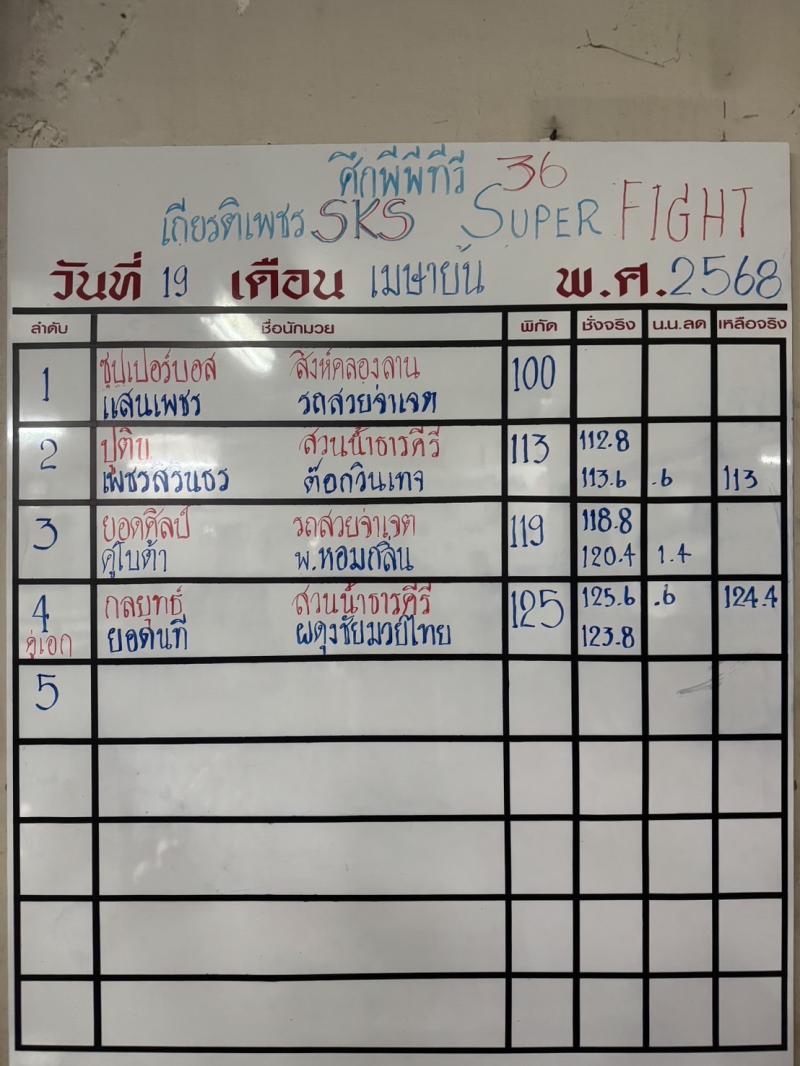 ศึกพีพีทีวี 36
เกียรติเพชร SKS SUPER FIGHT
วันที่ 19 เดือน เมษายน พ.ศ. 2568
ลำดับ ชื่อนักมวย พิกัด ชั่งจริง น.น.ลด เหลือจริง
1 ซุปเปอร์บอส สิงห์คลองลาน 100
แสนเพชร รถสวยจ่าเจต
2 ปูติน สวนน้ำธารคีรี 113 112.8
เพชรสวนธร ต๊อกวินเทจ 113.6 .6 113
3 ยอดศิลป์ รถสวยจ่าเจต 119 118.8
คูโบต้า พ.หอมกลิ่น 120.4 1.4
4 กลยุทธ์ สวนน้ำธารคีรี 125 125.6 .6 124.4
คู่เอก ยอดนที ผดุงชัยมวยไทย 123.8
5